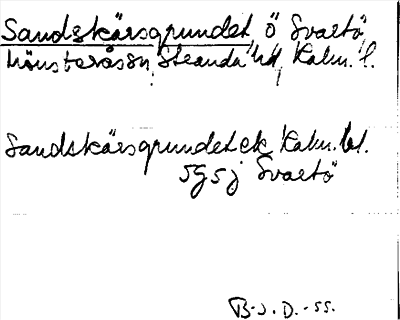 Sandskärsgrundet, ö Svartö,
Mönsterås sn, Stranda hd, Kalm. l.
Sandskärsgrundet ek Kalm. bl.
5g5j Svartö
B-S. D. -55.